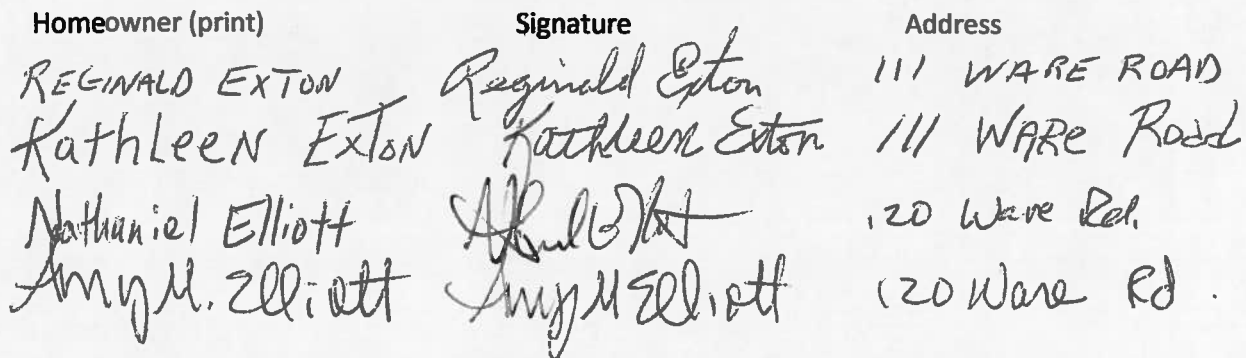 Homeowner (print) Signature Address
REGINALD EXTON Reginald Exton 111 WARE ROAD
KathLeeN EXTON Kathleen Exton 111 WARe Road
Nathaniel Elliott 120 Ware Rd.
Amy M. Elliott Amy M Elliott 120 Ware Rd.